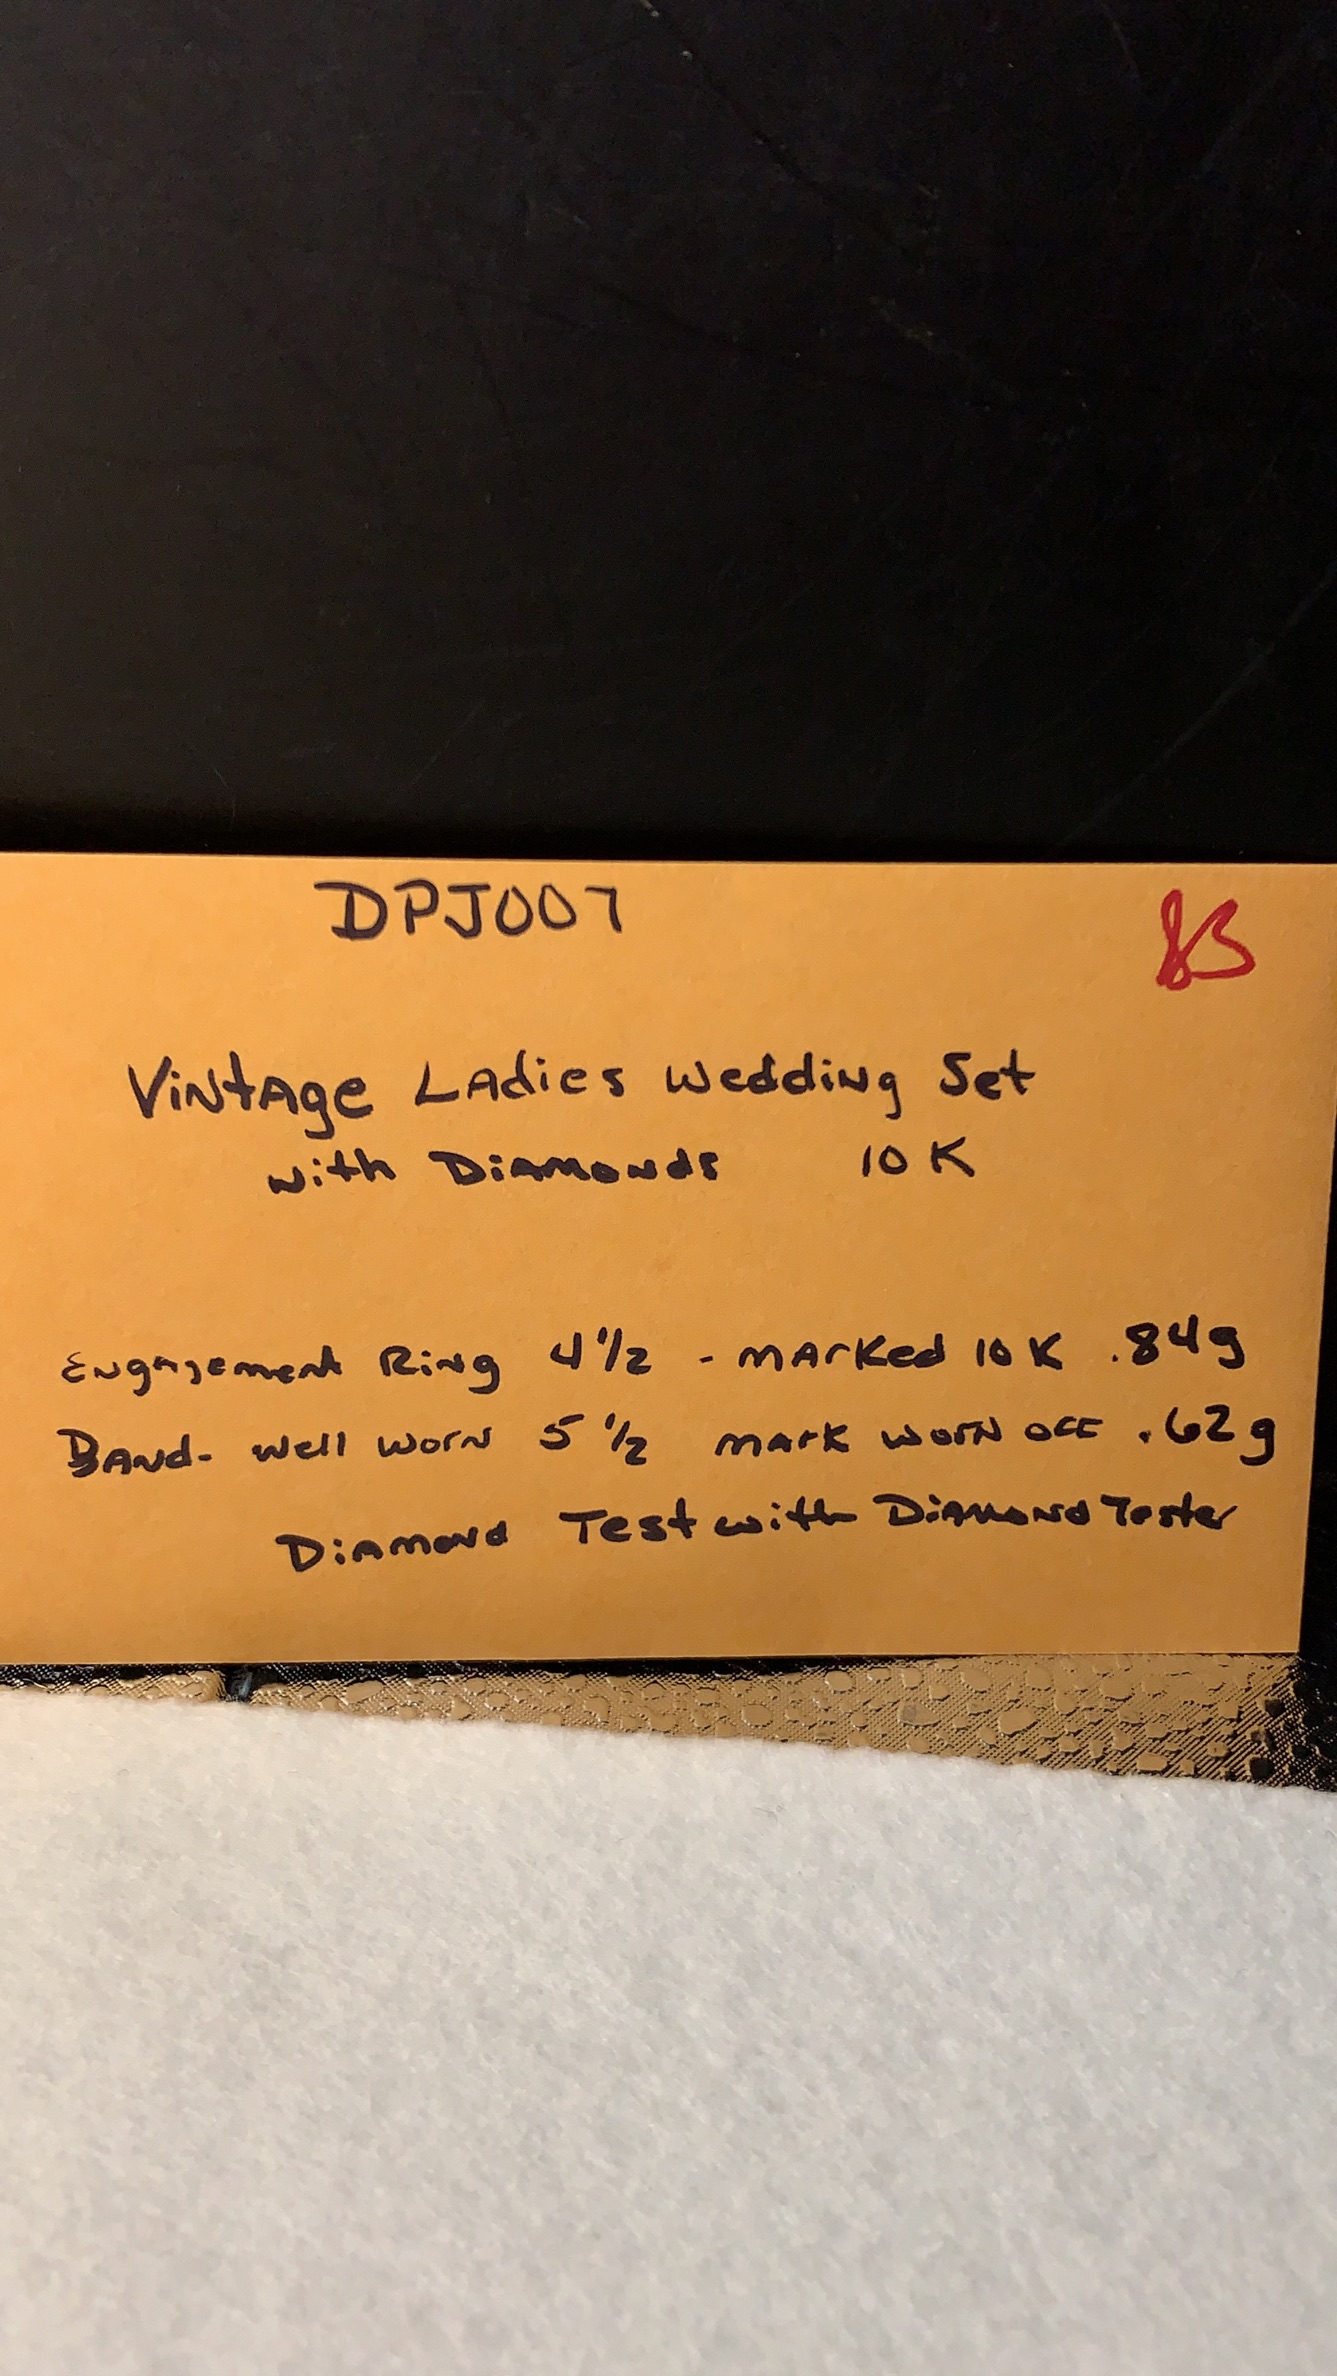 DPJ007
Vintage Ladies Wedding Set
with Diamonds 10K
Engagement Ring 4 1/2 - marked 10K .84g
Band- well worn 5 1/2 mark worn off .62g
Diamond Test with Diamond Tester